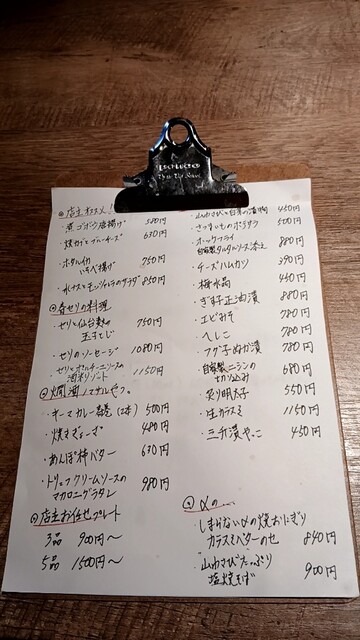 ◎店主オススメ！
・煮ゴボウ唐揚げ 580円
・焼カブとブルーチーズ 630円
・ホタルイカ
いそべ揚げ 750円
・水ナスとモッツァレラのサラダ 850円
◎春セリの料理
・セリと仙台麩の
玉子とじ 750円
・セリのソーセージ 1080円
・セリとポルチーニソースの
酒米リゾット 1150円
◎燗酒ノマサルやつ。
・キーマカレー春巻(2本) 500円
・焼きぎょーざ 480円
・あんぽ柿バター 630円
・トリュフクリームソースの
マカロニグラタン 980円
◎店主お任せプレート
3品 900円〜
5品 1500円〜
450円
・さつまいものポテサラ 500円
・ホッケフライ
自家製タルタルソース添え 880円
・チーズハムカツ 390円
・梅水晶 450円
・ぎす子正油漬 880円
・エビみそ 780円
・へしこ 780円
・フグ子ぬか漬 780円
・自家製ニシンの
切り込み 680円
・炙り明太子 550円
・生カラスミ 1150円
・三升漬やっこ 450円
◎〆の…
・しまらない〆の焼おにぎり
カラスミバターのせ 840円
・"山わさび"たっぷり
塩焼そば 900円